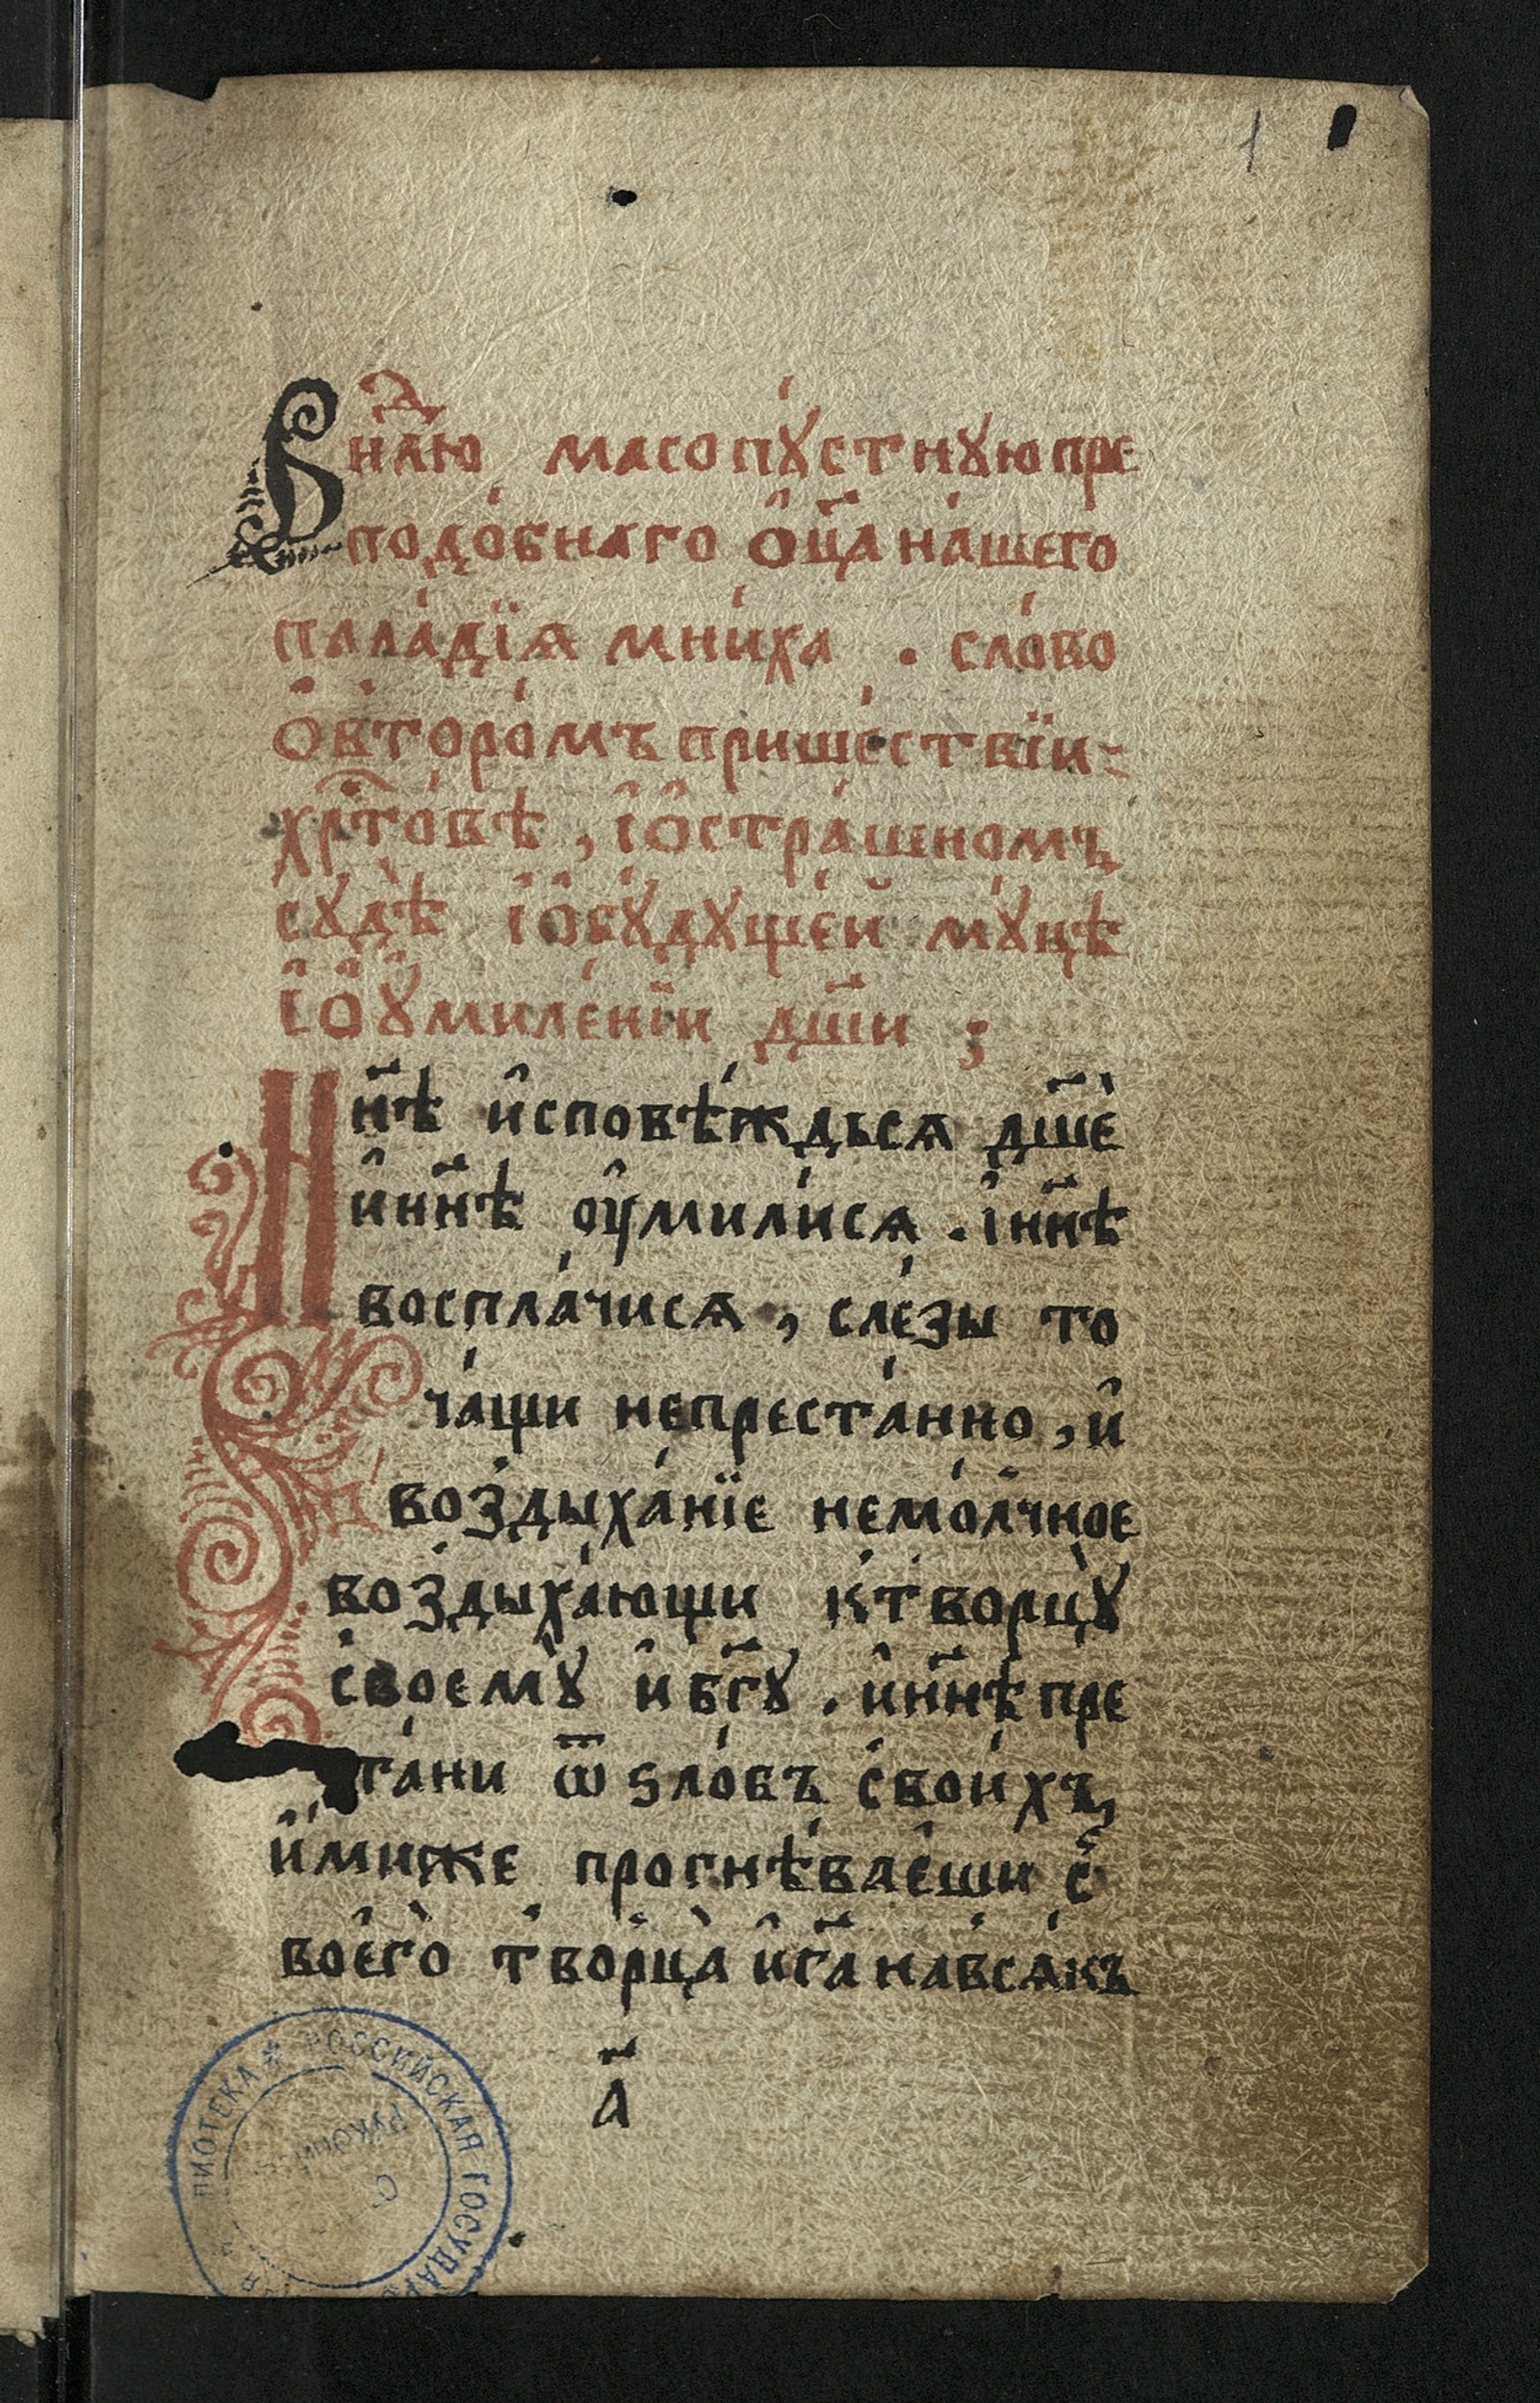 1
Внⷣлю масопꙋ́стнꙋю пре
подо́бнаго ѻ҆ц҃а на́шего
пала́дїѧ мни́ха . сло́во
ѻ҆второ́мъ прише́ствїи-
хрⷭ҇то́вѣ , і҆ѻ҆стра́шномъ
сꙋдѣ̀ і҆ѻ҆бꙋ́дꙋщей мꙋ́цѣ
і҆ѻ҆ꙋ҆миле́нїи дш҃и ;
Нн҃ѣ и҆сповѣ́ждьсѧ дш҃ѐ
и҆нн҃ѣ ѹ҆мили́сѧ . і҆нн҃ѣ
воспла́чисѧ , сле́зы то
ча́щи непреста́нно , и҆
воздыха́нїе немо́лчное
воздыха́ющи ктворцꙋ̀
своемꙋ̀ и҆бг҃ꙋ . и҆нн҃ѣ пре
ста́ни ѿ ѕло́бъ свои́хъ,
и҆́миже прогнѣ́ваеши с
воегѡ̀ творца̀ и҆г҃а навсѧ́къ
а҃
ЛИОТЕКА * РОССИЙСКАЯ ГОСУДАР